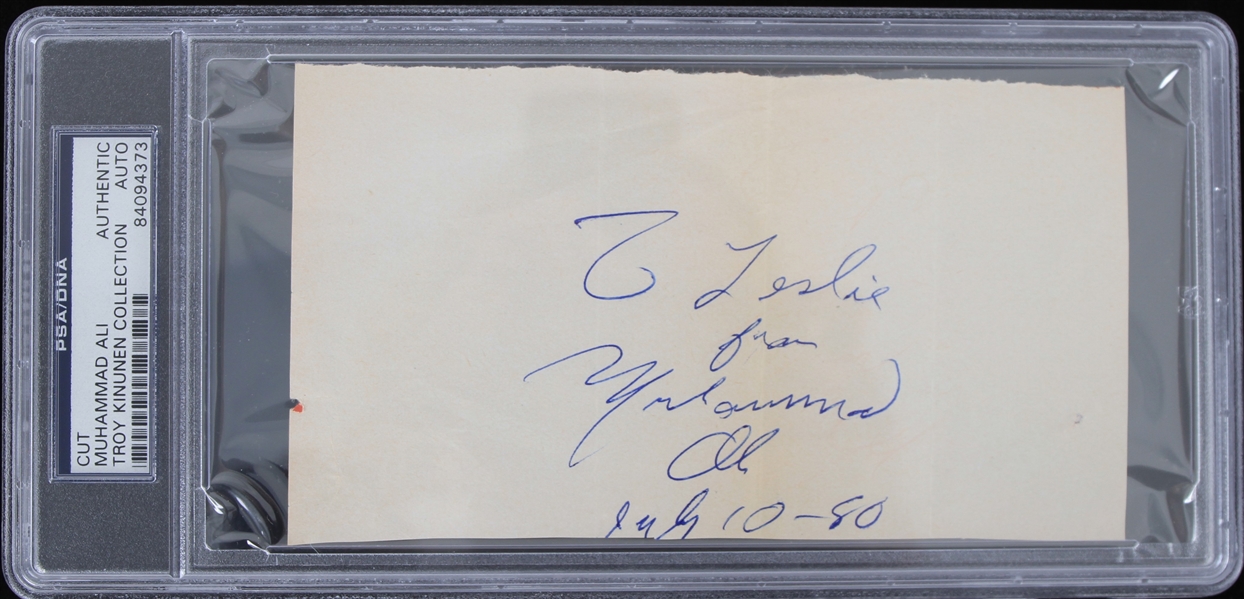 PSA/DNA
CUT
MUHAMMAD ALI AUTHENTIC
TROY KINUNEN COLLECTION AUTO
84094373
To Leslie
from
Muhammad
Ali
July 10-80